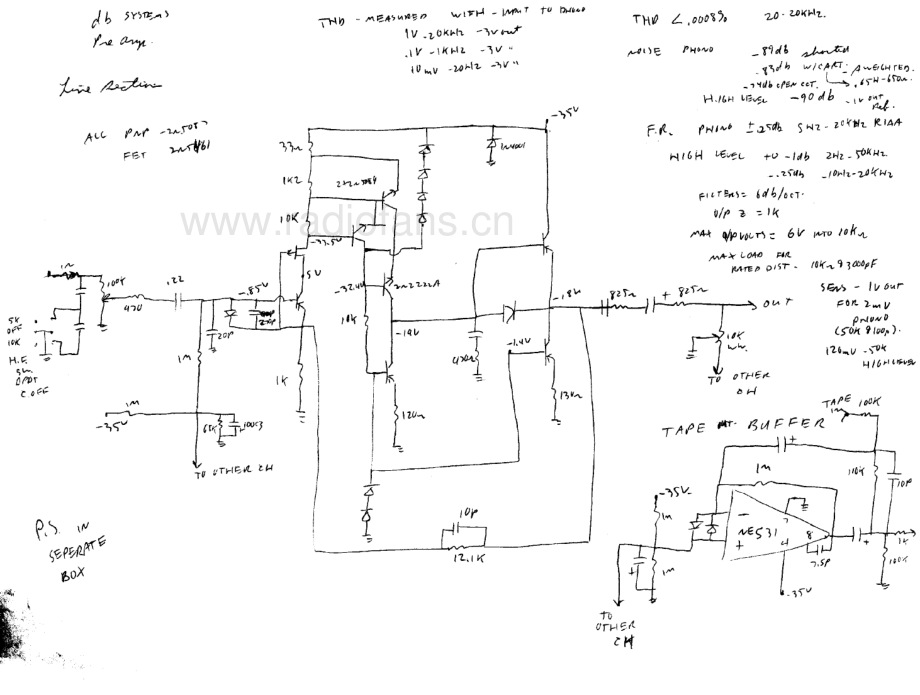 db SYSTEMS
Pre amp.
Line Section
ALL PNP - 2N5087
FET 2N5461
THD - MEASURED WITH - INPUT TO PHONO
1V - 20KHZ - 3V out
.1V - 1KHZ - 3V "
10mV - 20HZ - 3V "
THD <.0008% 20-20KHZ.
NOISE PHONO -89db shorted
-83db W/CART. - A WEIGHTED.
-74db OPEN CCT. .65H-650Ω
HIGH LEVEL -90db - 1V OUT
Ref.
F.R. PHONO ±.25db 5HZ-20KHZ RIAA
HIGH LEVEL +0 -1db 2HZ-50KHZ
-.25db -10HZ-20KHZ
FILTERS = 6db/OCT.
O/P Z = 1K
MAX O/P VOLTS = 6V INTO 10KΩ
MAX LOAD FOR
RATED DIST - 10KΩ & 3000pF
SENS - 1V OUT
FOR 2mV
PHONO
(50K & 100p)
120mV - 50K
HIGH LEVEL
www.radiofans.cn
-35V
33Ω
1K2
10K
1N4001
-33.5V
5V
-32.4V
2N2222A
-.85V
-19V
10K
-1.4V
-.18V
.22
100K
470
20p
1M
1K
5K
OFF
10K
H.F.
SW
DPDT
C.OFF
1M
-35V
68K
TO OTHER CH
120Ω
470Ω
130Ω
825Ω
+ 825Ω
OUT
10K
WW.
TO OTHER
CH
10p
12.1K
P.S. IN
SEPERATE
BOX
TAPE BUFFER
TAPE 100K
1M
110K
10P
-35V
1M
1M
NE531
-
+
7
4
8
7.5P
-35V
1K
100K
TO
OTHER
CH